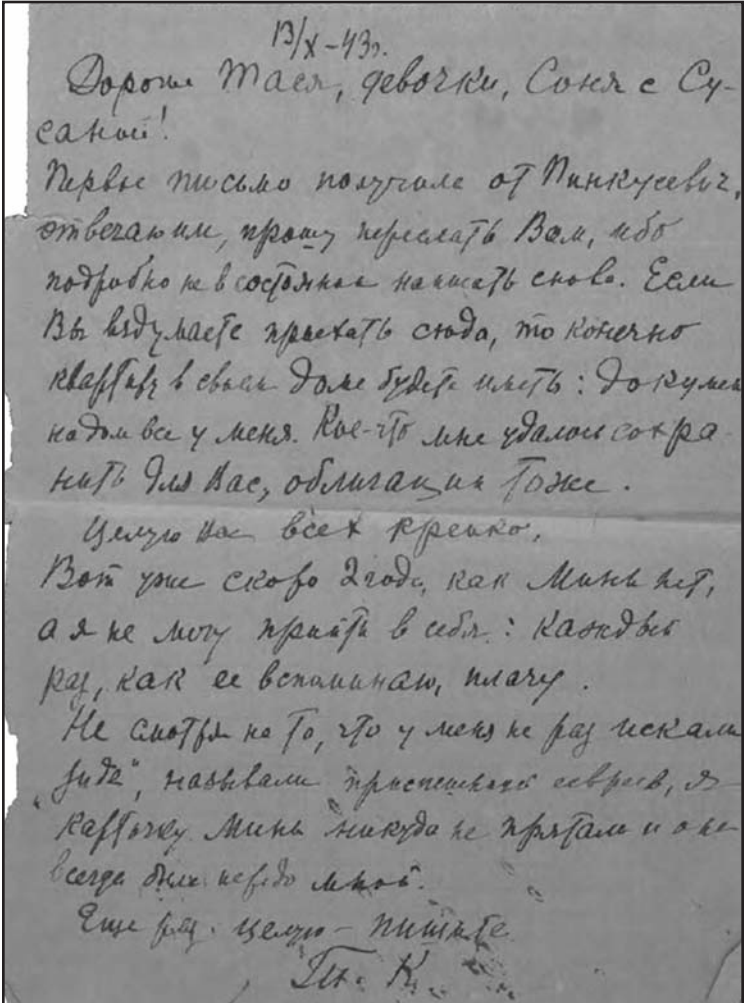 13/X-43г.
Дорогие Тася, девочки, Соня с Су-
санной!
Первое письмо получила от Пинкусевич,
отвечаю им, прошу переслать Вам, ибо
подробно не в состоянии написать снова. Если
Вы вздумаете приехать сюда, то конечно
квартиру в своем доме будете иметь: докумен
на дом все у меня. Кое-что мне удалось сохра-
нить для Вас, облигации тоже.
Целую Вас всех крепко.
Вот уже скоро 2 года, как Мини нет,
а я не могу прийти в себя: каждый
раз, как ее вспоминаю, плачу.
Не смотря на то, что у меня не раз искали
"Jude", называли приспешницей евреев, я
карточку Мини никуда не прятала и она
всегда была передо мной.
Еще раз целую - пишите
К.